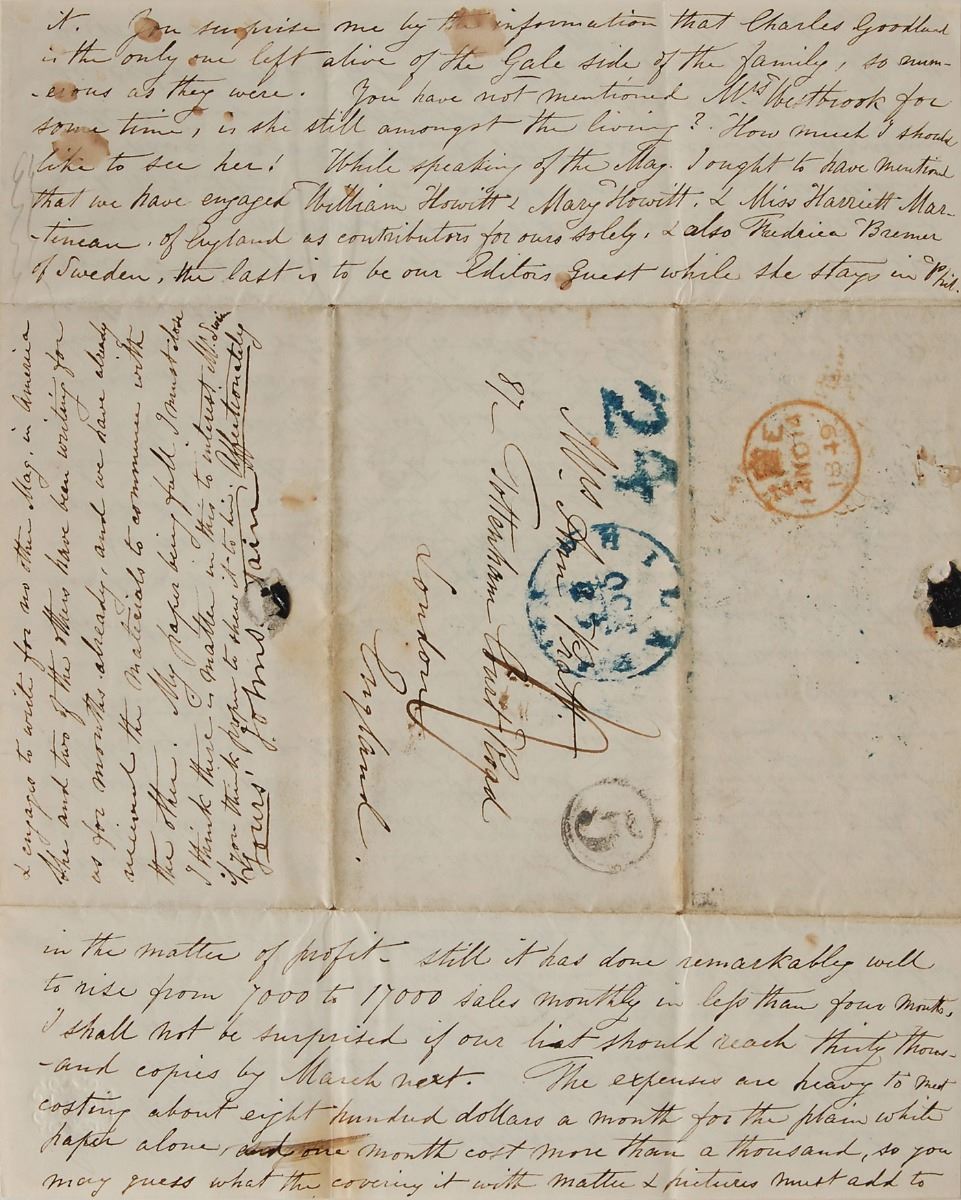 it. You surprise me by the information that Charles Goodlud
is the only one left alive of the Gale side of the family, so num-
-erous as they were. You have not mentioned Mrs Westbrook for
some time, is she still amongst the living? How much I should
like to see her! While speaking of the Mag. I ought to have mention
that we have engaged William Howitt & Mary Howitt, & Miss Harriett Mar-
-tineau, of England as contributors for ours solely, & also Fredrica Bremer
of Sweden, the last is to be our Editors Guest while she stays in Phil.
& engages to write for no other Mag. in America
She and two of the others have been writing for
us for months already, and we have already
received the materials to commence with
the other. My paper being full I must close
I think there is matter in this to interest Mr.
if you think proper to shew it to him.
Yours, Affectionately
John Sartain
Mrs Ann Pratt.
87 Tottenham Court Road
London
England.
24
OCT
5
14 NO 14
1849
in the matter of profit - still it has done remarkably well
to rise from 7000 to 17000 sales monthly in less than four months,
I shall not be surprised if our list should reach thirty thous-
-and copies by March next. The expenses are heavy to meet
costing about eight hundred dollars a month for the plain white
paper alone, and one month cost more than a thousand, so you
may guess what the covering it with matter & pictures must add to